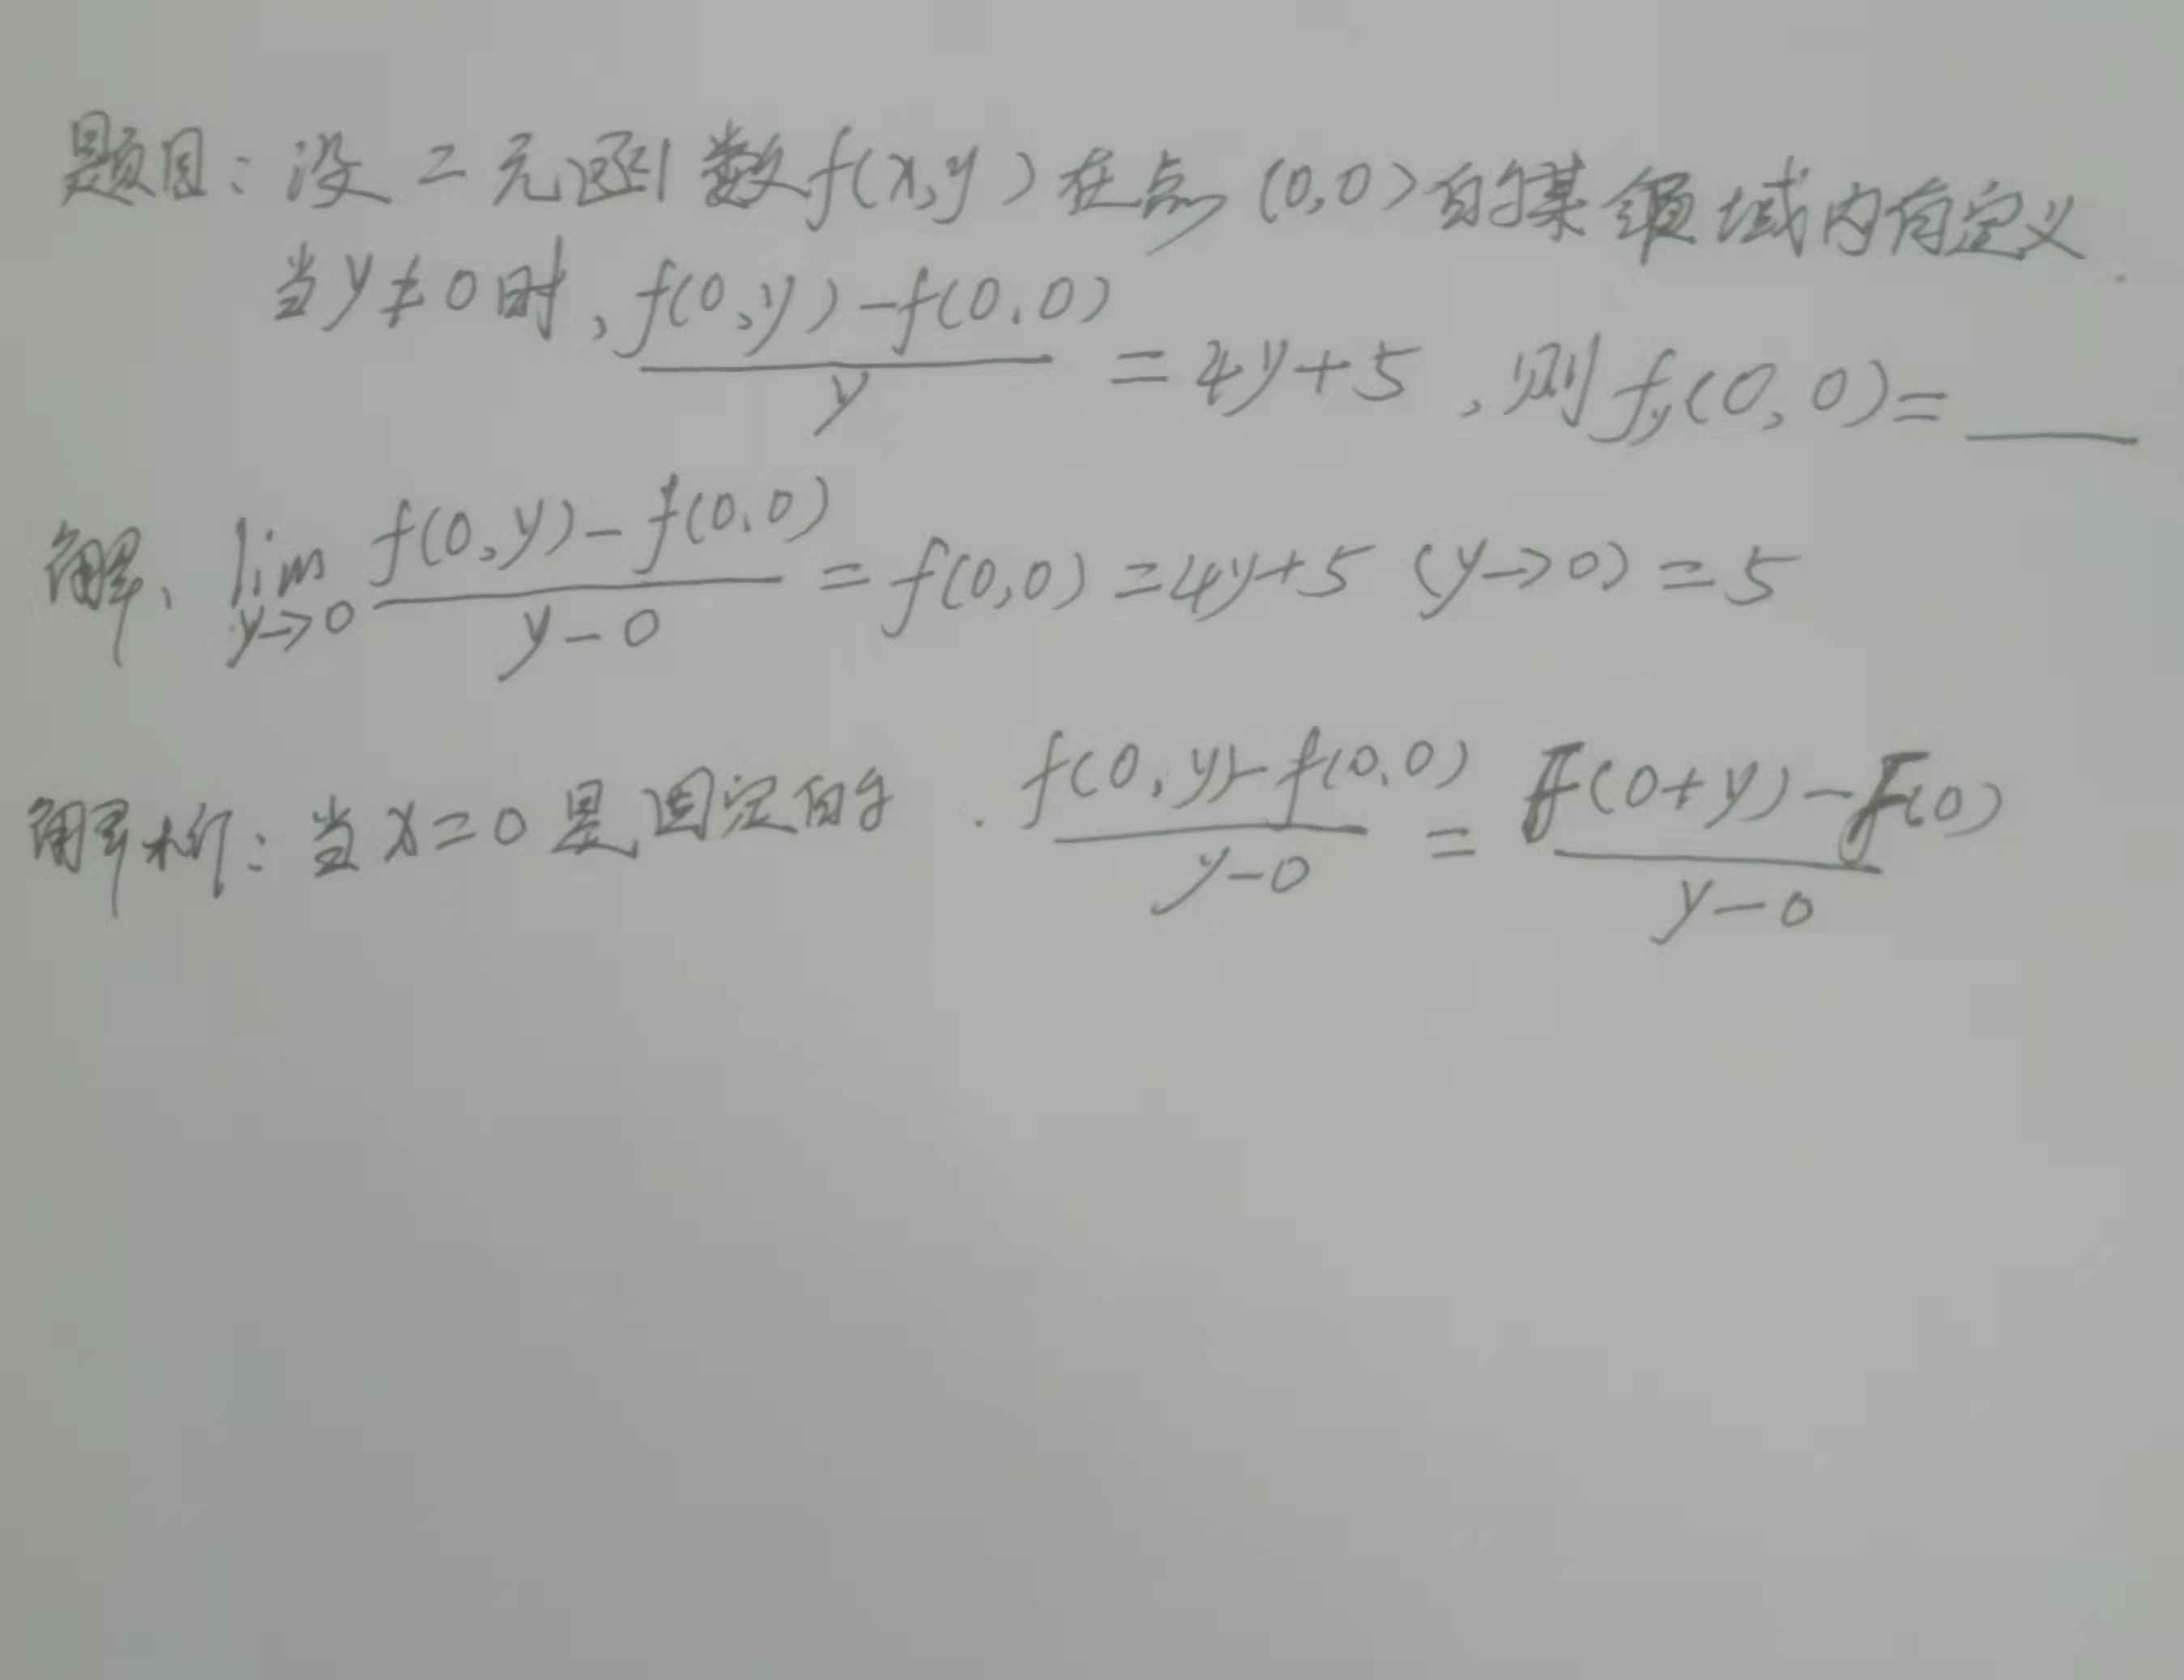 题目：设二元函数f(x,y)在点(0,0)的某领域内有定义.
当y≠0时，\frac{f(0,y)-f(0,0)}{y} = 4y+5，则f_y(0,0)=____
解、\lim_{y→0} \frac{f(0,y)-f(0,0)}{y-0} = f(0,0) = 4y+5 (y→0) = 5
解析：当x=0是固定的. \frac{f(0,y)-f(0,0)}{y-0} = \frac{F(0+y)-F(0)}{y-0}